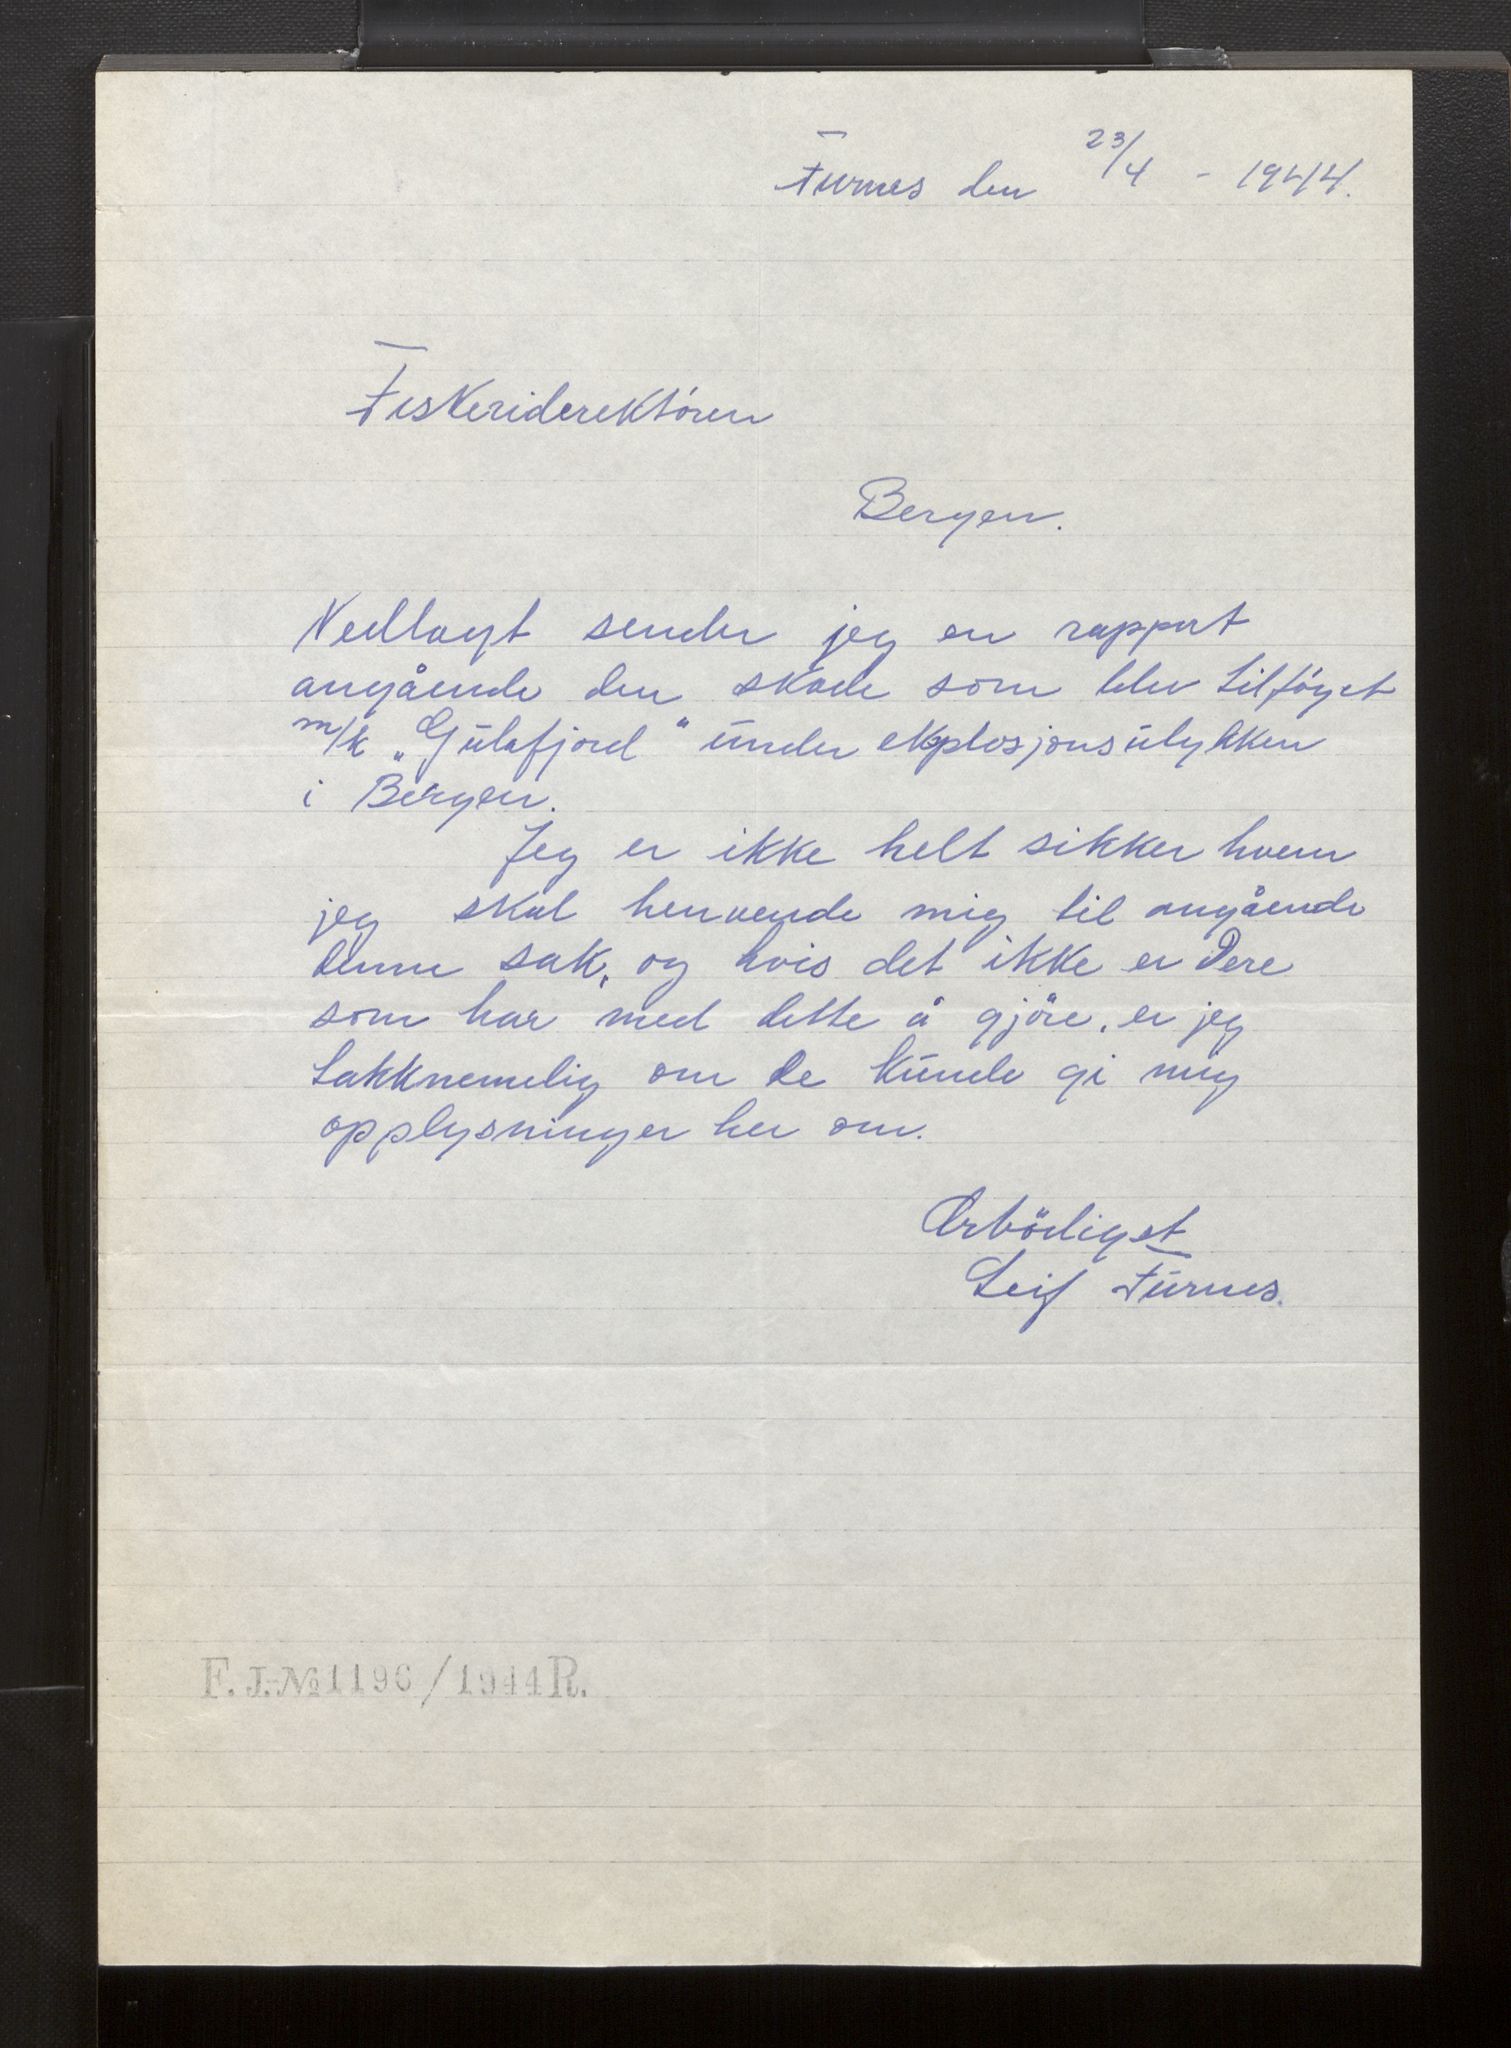 Furnes den 23/4 - 1944.
Fiskeriderektøren
Bergen.
Vedlagt sender jeg en rapport
angående den skade som blev tilföyet
m/k "Gulafjord" under eksplosjonsulykken
i Bergen.
Jeg er ikke helt sikker hvem
jeg skal henvende mig til angående
denne sak, og hvis det ikke er Dere
som har med dette å gjöre, er jeg
takknemelig om De kunde gi mig
opplysninger her om.
Ærbödigst
Leif Furnes.
F. J.-№ 1196/1944 R.